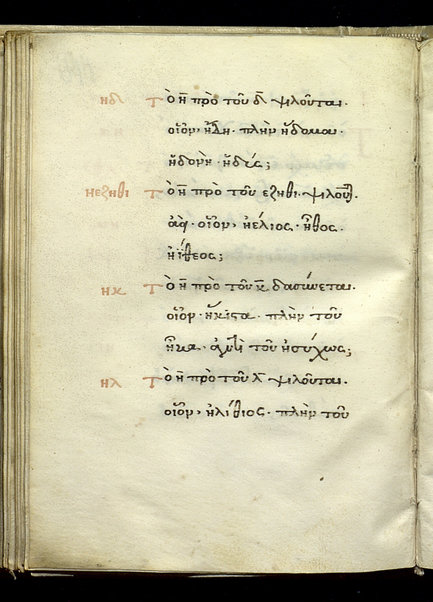 ηδ Τὸ η̄ πρὸ τοῦ δ̄ ψιλοῦται·
οἷον, ἤδη· πλὴν ἥδομαι·
ἡδονὴ· ἡδύς;
ηεζηθι Τὸ η̄ πρὸ τοῦ εζηθι· ψιλοῦτ·
οἷον· ἠέλιος· ἦθος·
ἠΐθεος;
ηκ Τὸ η̄ πρὸ τοῦ κ̄ δασύνεται·
οἷον· ἥκιστα· πλὴν τοῦ
ἦκα· ἀντὶ τοῦ ἡσύχως;
ηλ Τὸ η̄ πρὸ τοῦ λ̄ ψιλοῦται·
οἷον, ἠλίθιος· πλὴν τοῦ